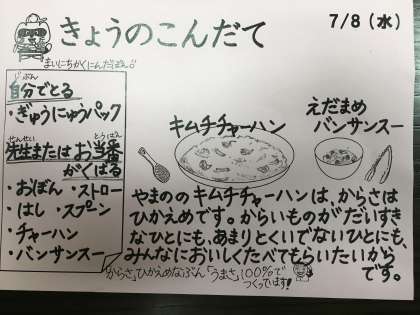 きょうのこんだて
7/8（水）
まいにちかくにんだぽん♪
自分でとる
じぶん
・ぎゅうにゅうパック
先生またはお当番
せんせい
とうばん
がくばる
・おぼん ・ストロー
・はし ・スプーン
・チャーハン
・バンサンスー
キムチチャーハン
えだまめ
バンサンスー
やまののキムチチャーハンは、からさは
ひかえめです。からいものがだいすき
なひとにも、あまりとくいでないひとにも、
みんなにおいしくたべてもらいたいから
です。
「からさ」ひかえめなぶん「うまさ」100%で
つくっています!